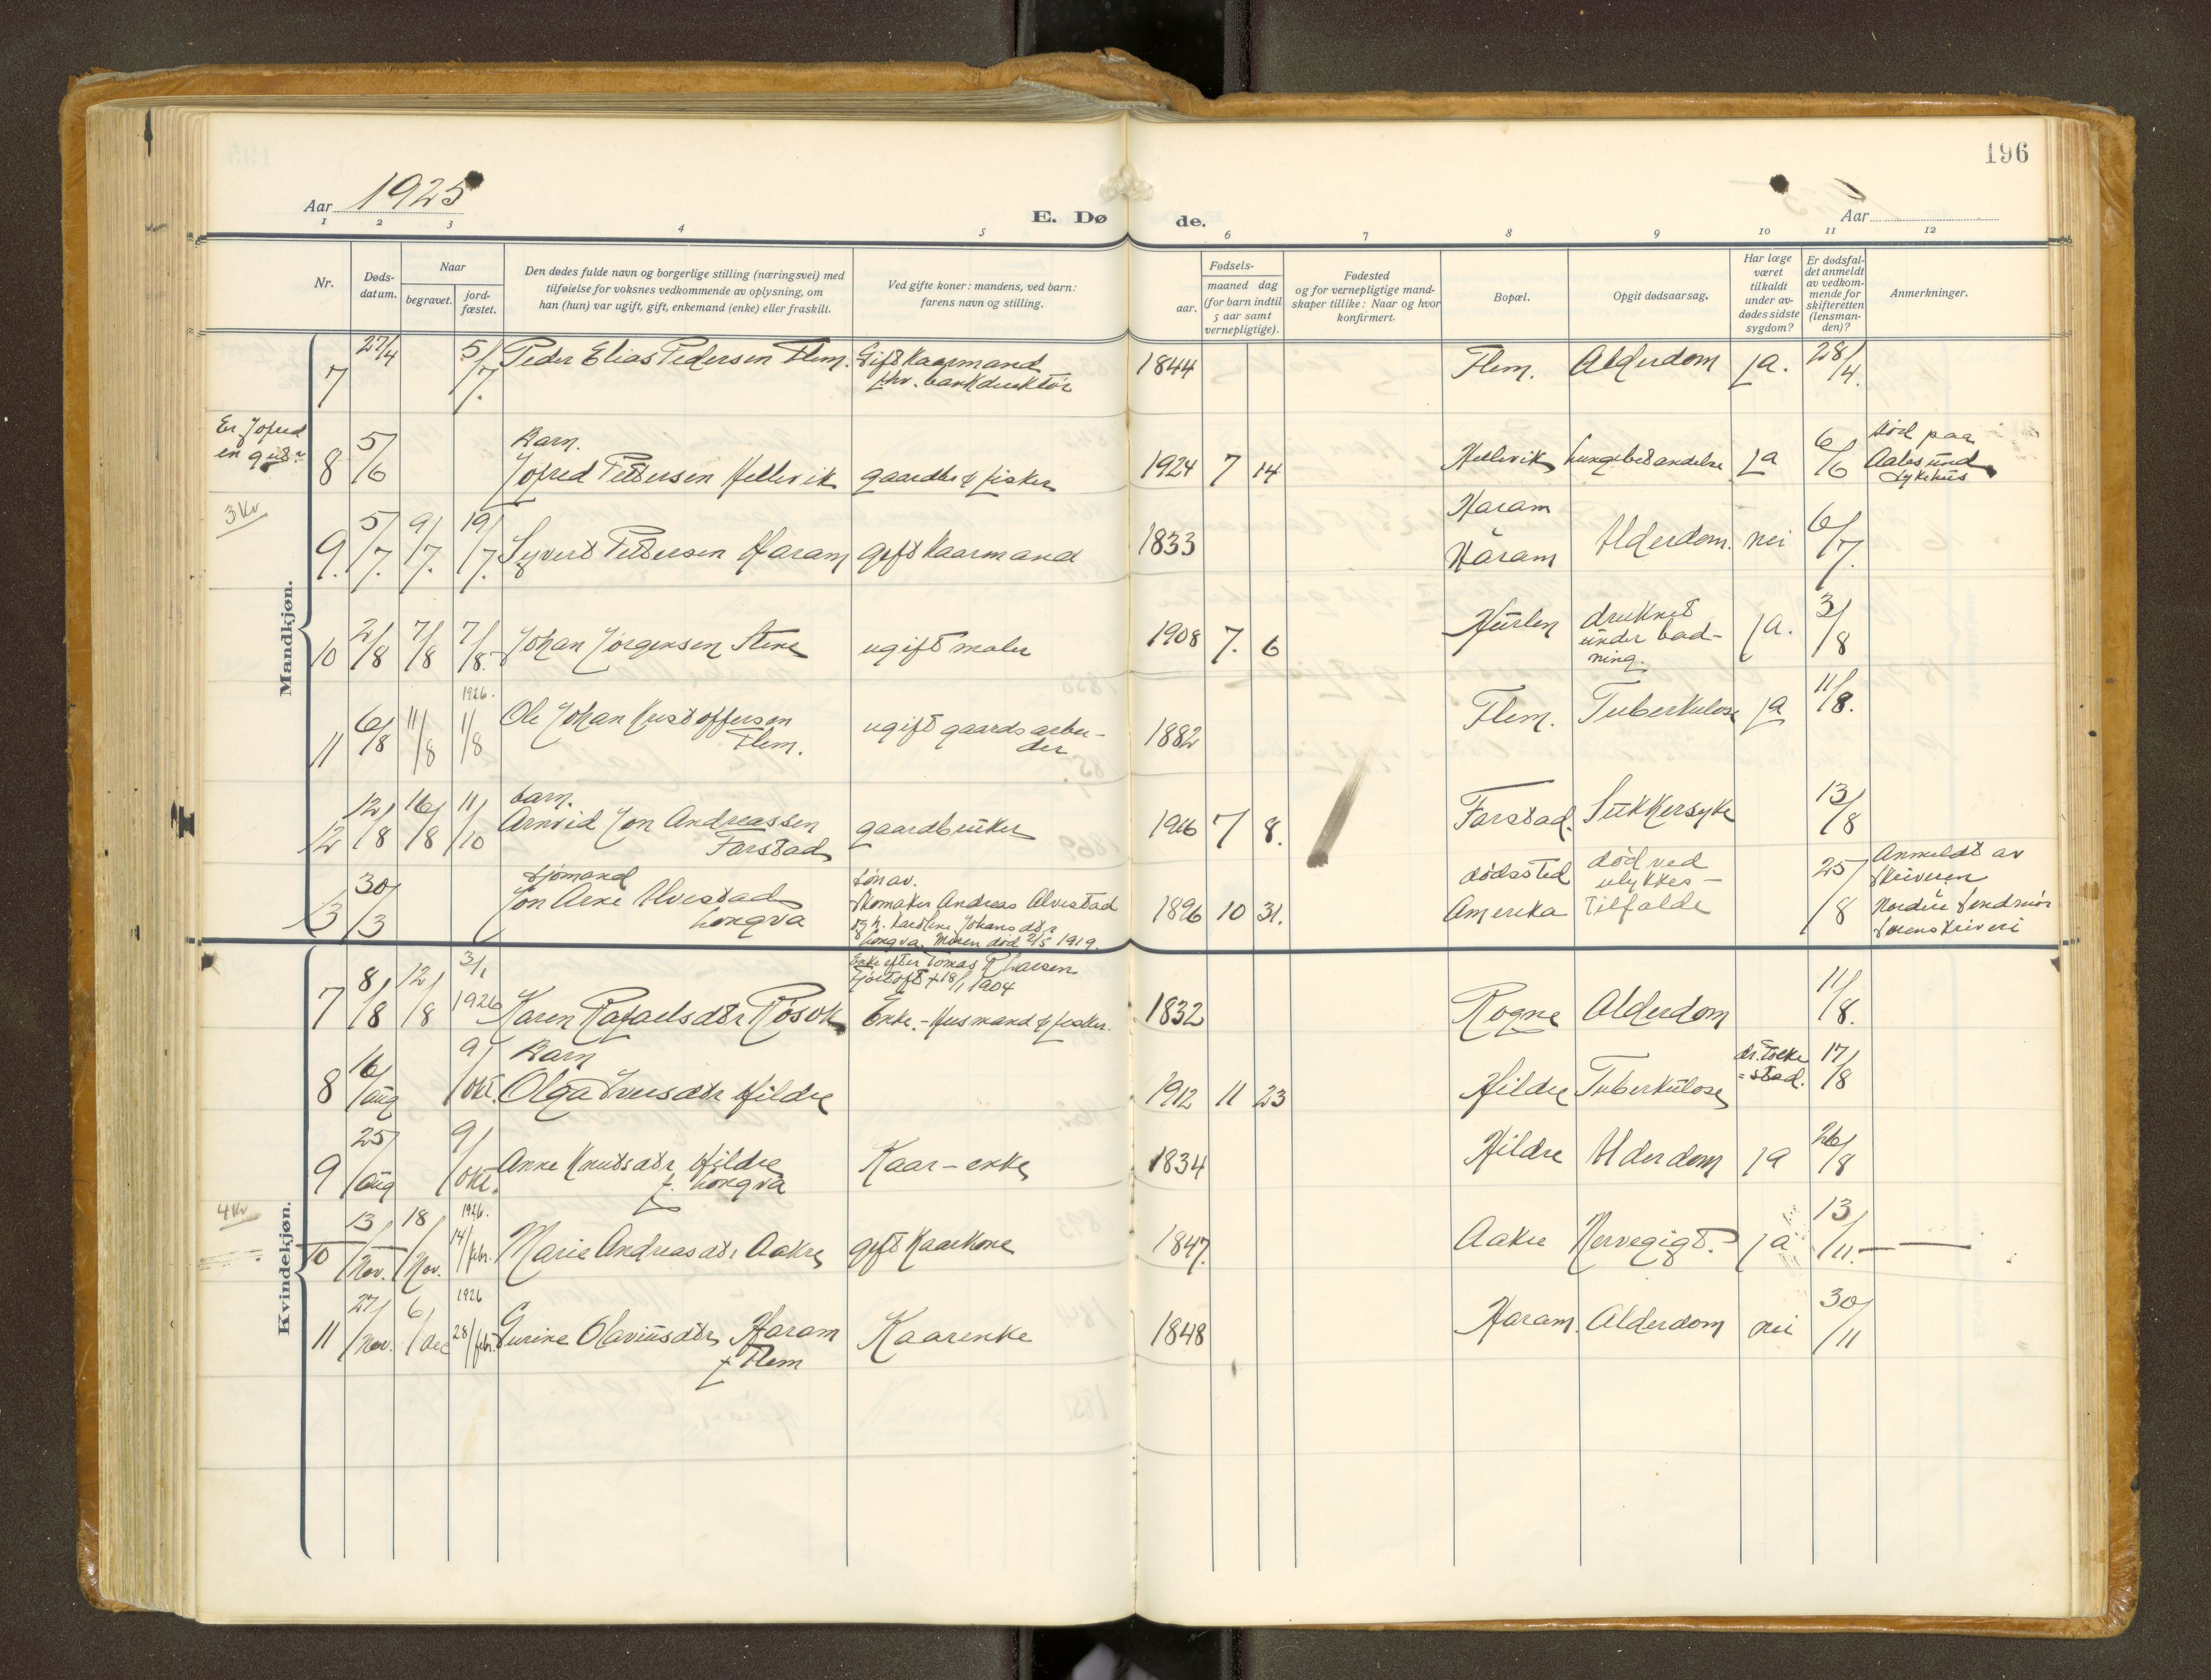 196
Aar 1925
E. Dø de.
Aar
1 2 3 4 5 6 7 8 9 10 11 12
Nr.
Døds-
datum.
Naar
begravet.
jord-
fæstet.
Den dødes fulde navn og borgerlige stilling (næringsvei) med
tilføielse for voksnes vedkommende av oplysning, om
han (hun) var ugift, gift, enkemand (enke) eller fraskilt.
Ved gifte koner: mandens, ved barn:
farens navn og stilling.
aar.
Fødsels-
maaned dag
(for barn indtil
5 aar samt
vernepligtige).
Fødested
og for vernepligtige mand-
skaper tillike: Naar og hvor
konfirmert.
Bopæl.
Opgit dødsaarsag.
Har læge
været
tilkaldt
under av-
dødes sidste
sygdom?
Er dødsfal-
det anmeldt
av vedkom-
mende for
skifteretten
(lensman-
den)?
Anmerkninger.
Mandkjøn.
7 27/4 5/7. Peder Elias Pedersen Flem. Gift Kaarmand
fhv. bankdirektør 1844 Flem. Alderdom ja. 28/4.
Er Jofred
en gut?
8 5/6 Barn.
Jofred Pettersen Hellevik gaardbr & fisker 1924 7 14 Hellevik Lungebetændelse ja 6/6 død paa
Aalesund
sykehus
3 Kr
9. 5/7. 9/7. 19/7. Syvert Pettersen Haram gift Kaarmand 1833 Haram
Haram Alderdom. nei 6/7.
10 2/8 7/8 7/8. Johan Jørgensen Stene ugift maler 1908 7. 6 Hurlen druknet
under bad-
ning. ja. 3/8
11 6/8 11/8 1926. 1/8 Ole Johan Kristoffersen
Flem. ugift gaardsarbei-
der 1882 Flem. Tuberkulose ja 11/8.
12 12/8 16/8 11/10 barn.
Arnvid Jon Andreassen
Farstad gaardbruker 1916 7 8. Farstad. Sukkersyke 13/8
13 30/3 Sjømand
Jon Arne Alvestad
Longva Søn av.
Skomaker Andreas Alvestad
og h. Karoline Johansdtr
Longva. Moren død 2/5 1919. 1896 10 31. dødssted
Amerika død ved
ulykkes-
tilfælde 25/8 Anmeldt av
Skriveren
i
Nordre Søndmør
Sorenskriveri
Kvindekjøn.
7 8/8 12/8 3/1 1926 Karen Rafaelsdtr Røsok Enke efter Tomas P Larsen
Fjørtoft + 18/1 1904
Enke. - Husmand & fisker. 1832 Rogne Alderdom 11/8.
8 16/aug 9/okt. Barn
Olga Iversdtr Hildre 1912 11 23 Hildre Tuberkulose dr. Tolke
=stad. 17/8
9 25/aug 9/okt. Anne Knutsdtr Hildre
f. Longva Kaar-enke 1834 Hildre Alderdom ja 26/8
4 Kr
10 13/Nov. 18/Nov. 1926. 14/febr. Marie Andreasdtr Aakre gift Kaarkone 1847. Aakre Nervegigt. ja 13/11.
11 27/Nov. 6/dec 1926 28/febr. Gurine Olaviusdtr Haram
f Flem Kaarenke 1848 Haram. Alderdom nei 30/11